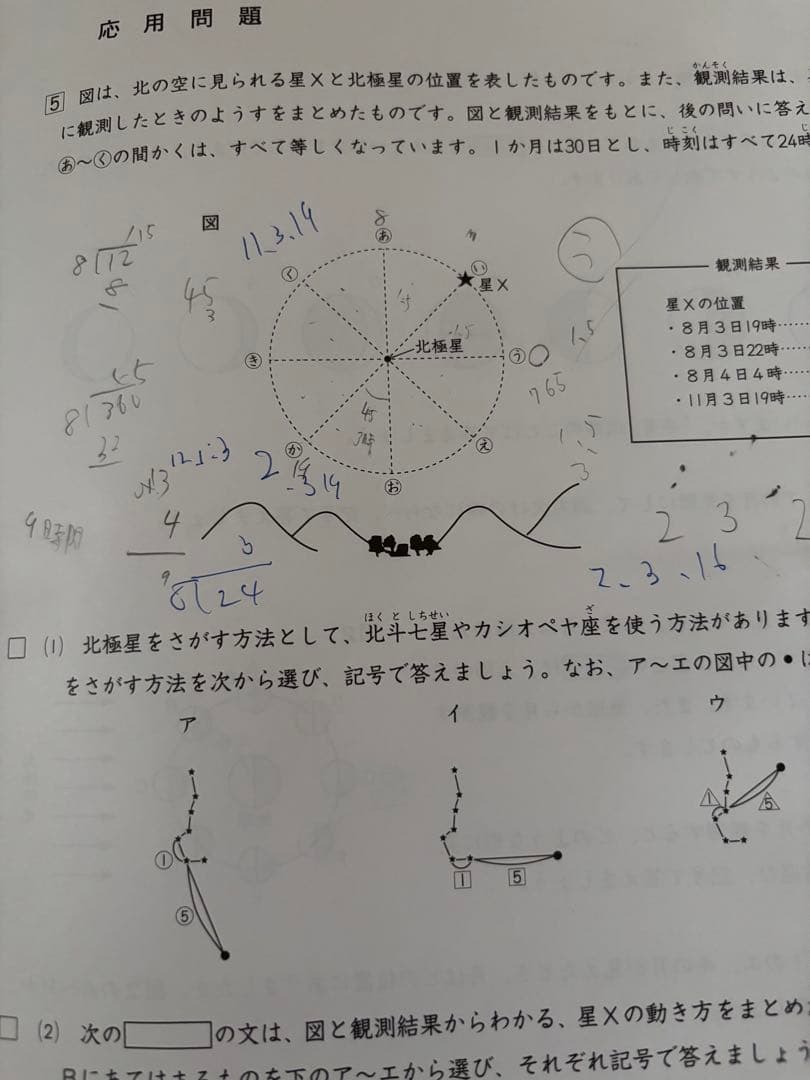 応用問題
5 図は、北の空に見られる星Xと北極星の位置を表したものです。また、観測結果は、
かんそく
に観測したときのようすをまとめたものです。図と観測結果をもとに、後の問いに答え
あ〜くの間かくは、すべて等しくなっています。1か月は30日とし、時刻はすべて24時
じこく
図
11、3、19
8
あ
い
星X
う
え
お
か
き
く
北極星
8 12
8
45
3
8 360
32
4
9時間
9
12、1、3
2
3 19
3
8 24
45
う
1.5
観測結果
星Xの位置
・8月3日19時……
・8月3日22時……
・8月4日4時……
・11月3日19時……
2 3 2
2、3、16
(1) 北極星をさがす方法として、北斗七星やカシオペヤ座を使う方法があります
ほくとしちせい
ざ
をさがす方法を次から選び、記号で答えましょう。なお、ア〜エの図中の●は
ア
イ
ウ
① ⑤
1 5
1 5
(2) 次の の文は、図と観測結果からわかる、星Xの動き方をまとめ
Bにあてはまるものを下のア〜エから選び、それぞれ記号で答えましょう